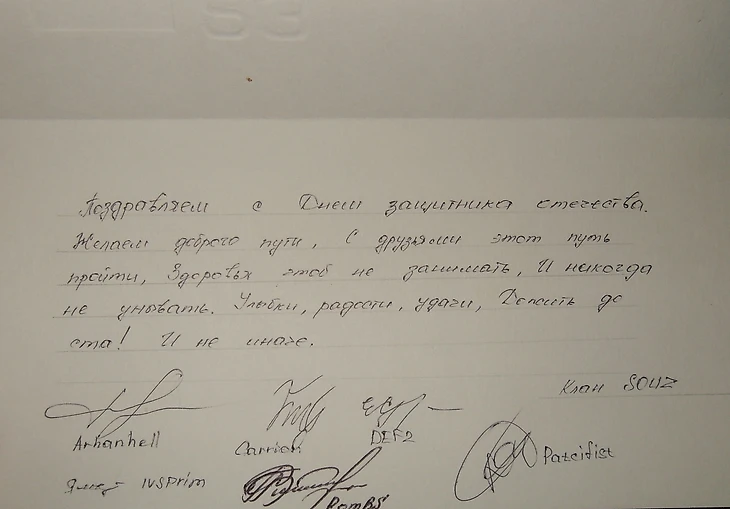 Поздравляем с Днем защитника отечества.
Желаем доброго пути, С друзьями этот путь
пройти, Здоровья чтоб не занимать, И никогда
не унывать. Улыбки, радости, удачи, Дожить до
ста! И не иначе.
Клан SOUZ
Arhanhell Carrion DEF2
Patcifist
IVSPrim
RomBS